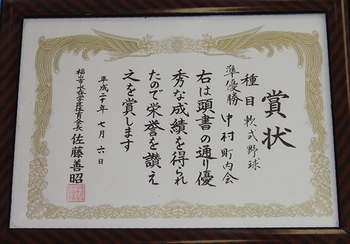 賞状
種目 軟式野球
準優勝 中村町内会
右は頭書の通り優
秀な成績を得られ
たので栄誉を讃え
之を賞します
平成二十年 七月 六日
佐藤善昭